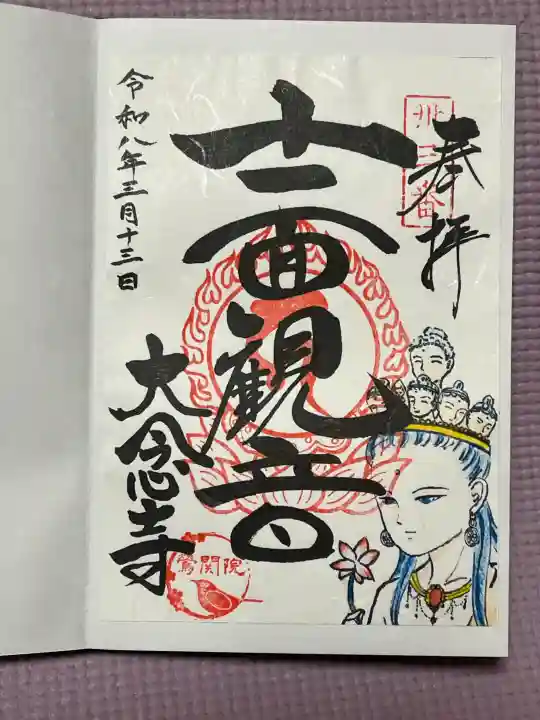 奉拝
卅三番
十一面観音
大念寺
鶯関院
令和八年三月十三日